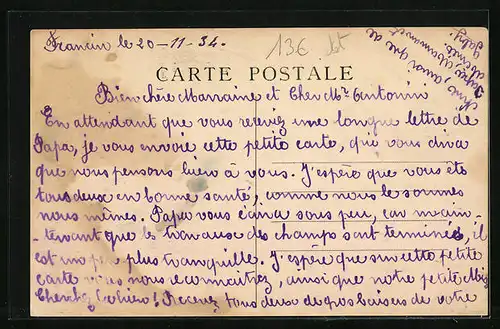 Francin le 20-11-34.
136 lot
CARTE POSTALE
Bien chère Marraine et Cher Mr Antonin
En attendant que vous receviez une longue lettre de
Papa, je vous envoie cette petite carte, qui vous dira
que nous pensons bien à vous. J'espère que vous êts
tous deux en bonne santé, comme nous le sommes
nous mêmes. Papa vous écrira sous peu, car main-
-tenant que les travaux des champs sont terminés, il
est un peu plus tranquille. J'espère que sur cette petite
carte vous nous reconnaitrez, ainsi que notre petite
Recevez tous deux de gros baisers de votre
ainsi que de
Papa, Maman et